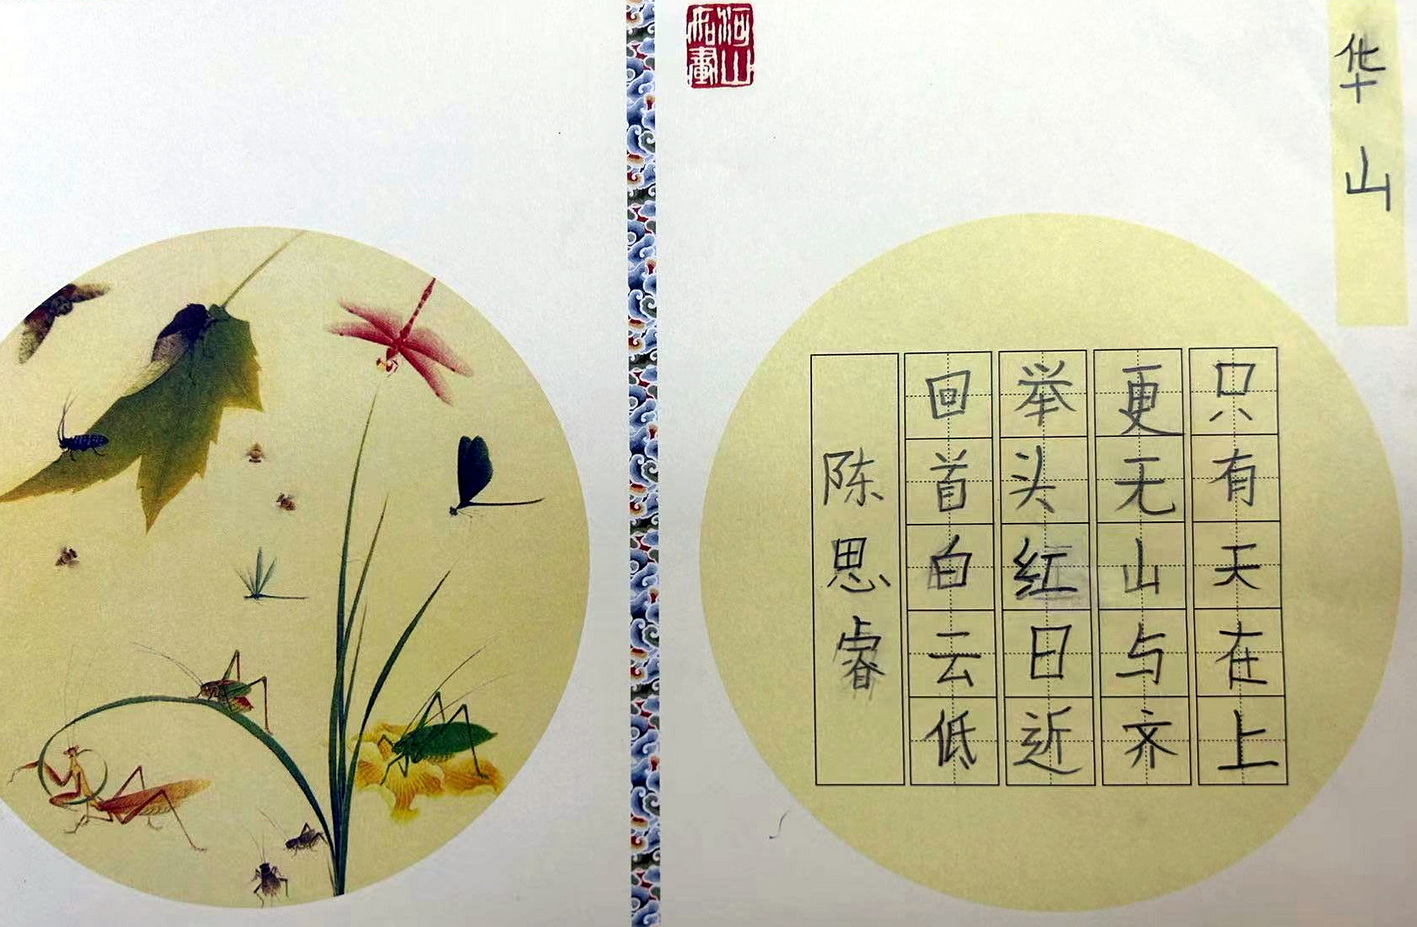 华山
只有天在上
更无山与齐
举头红日近
回首白云低
陈思睿
河山
如画